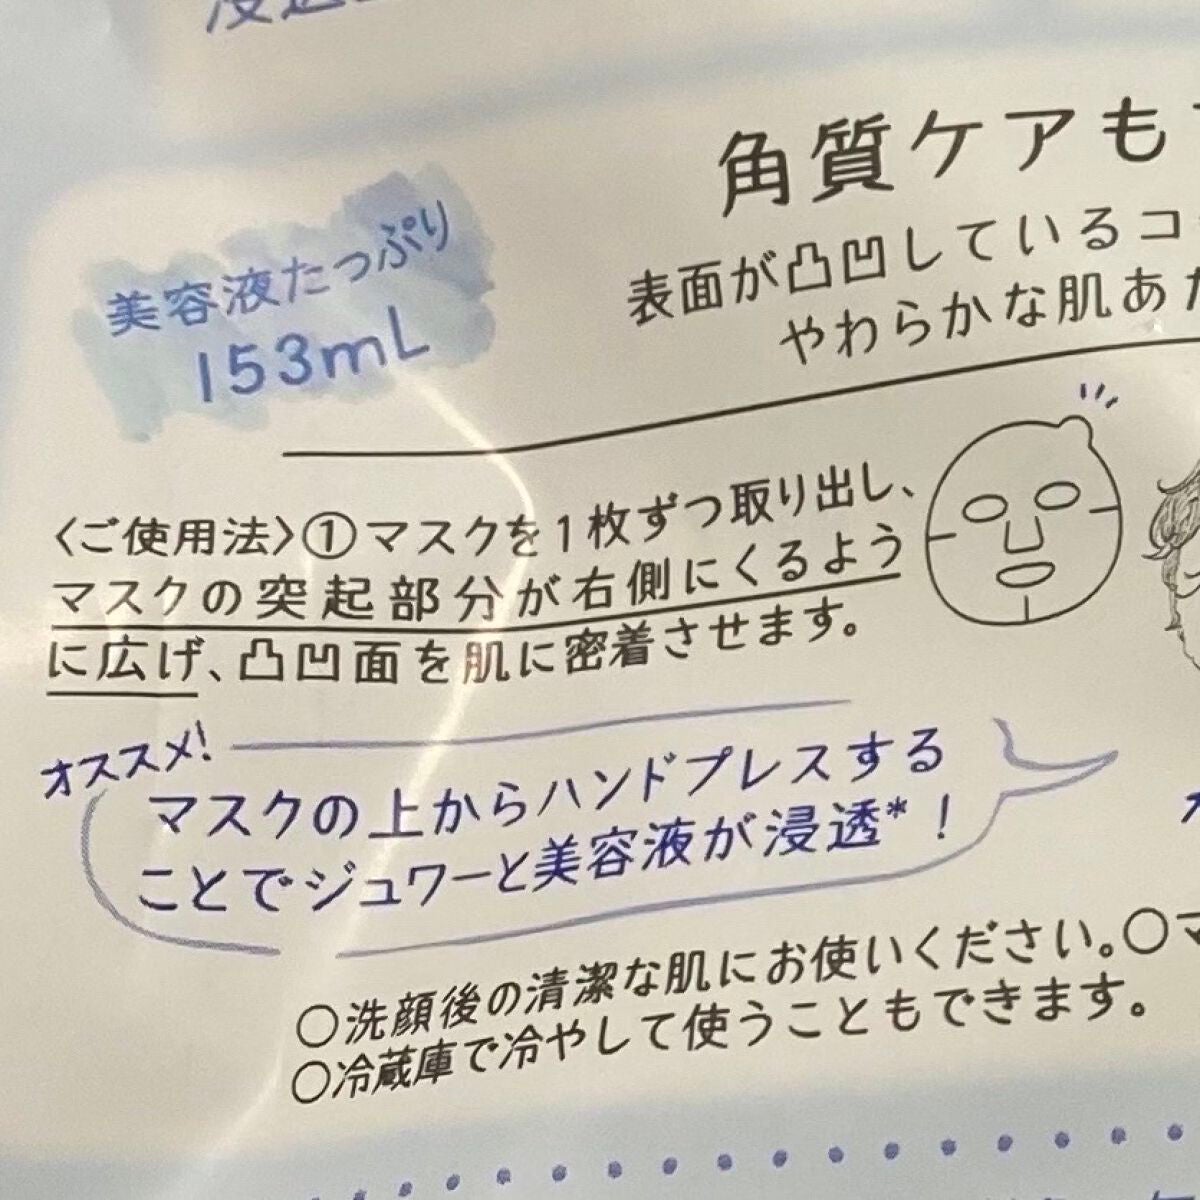 角質ケアも
美容液たっぷり
153mL
表面が凸凹しているコ
やわらかな肌あた
〈ご使用法〉①マスクを1枚ずつ取り出し、
マスクの突起部分が右側にくるよう
に広げ、凸凹面を肌に密着させます。
オススメ!
マスクの上からハンドプレスする
ことでジュワーと美容液が浸透*!
○洗顔後の清潔な肌にお使いください。○マ
○冷蔵庫で冷やして使うこともできます。